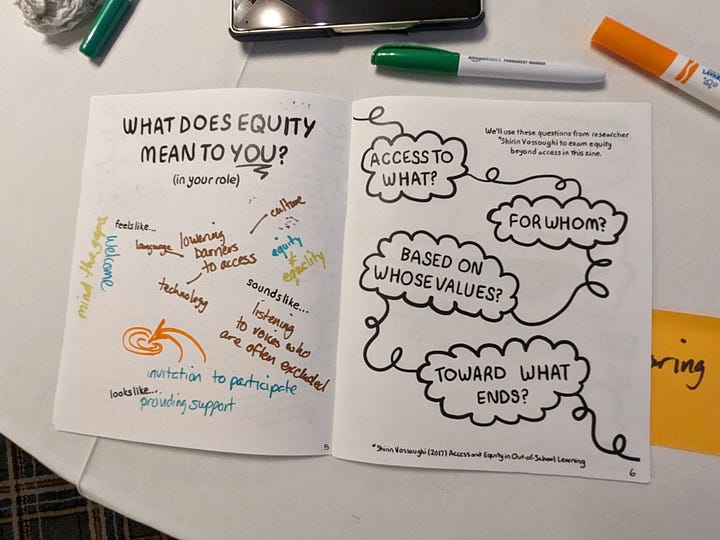 amazonbasics PERMANENT MARKER
WHAT DOES EQUITY
MEAN TO YOU?
(in your role)
feels like...
mind the gaps
Welcome
language
lowering
barriers
to access
culture
technology
equity
≠
equality
sounds like...
listening
to voices who
are often excluded
invitation to participate
looks like....
providing support
5
We'll use these questions from researcher
*Shirin Vossoughi to exam equity
beyond access in this zine.
ACCESS TO
WHAT?
FOR WHOM?
BASED ON
WHOSE VALUES?
TOWARD WHAT
ENDS?
*Shirin Vossoughi (2017) Access and Equity in Out-of-School Learning
6